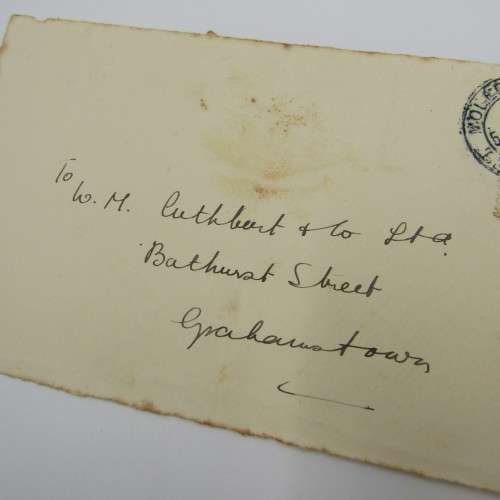 To
W. M. Cuthbert & Co Ltd.
Bathurst Street
Grahamstown